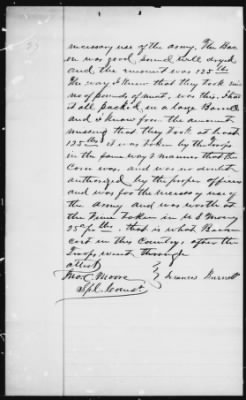 necessary use of the army. The Bac
on was good, sound well dryed
and the amount was 125 lbs
The way I know that they took
no of pounds of meat, was this. I had
it all packed in a large Barrel
and I know from the amount
missing that they took at least
125 lbs it was taken by the troops
in the same way & manner that the
Corn was, and was no doubt
authorized by the proper officers
and was for the necessary use of
the army and was worth at
the time taken in U S Money
25c per lb. that is what Bacon
cost in this Country, after the
Troops went through
attest
Thos. C. Moore
Spl. Comr